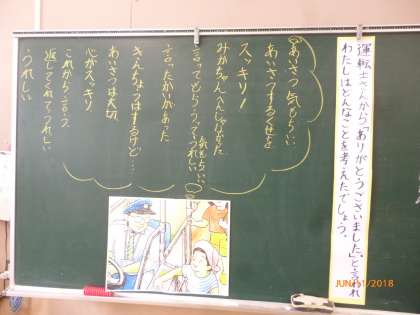 運転士さんから「ありがとうございました。」と言われ
わたしはどんなことを考えたでしょう。
あいさつって気もちいい
あいさつするくせを
スッキリ!
言ってもらうってうれしい
気もちいい
言ったかいがあった
きんちょうはするけど…
あいさつは大切
心がスッキリ
これからも言う
返してくれてうれしい
うれしい
JUN/11/2018